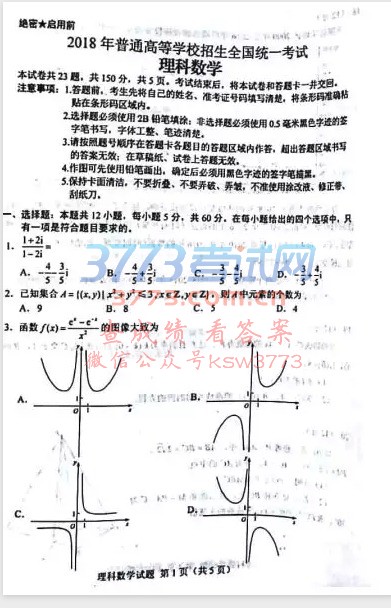 绝密★启用前
2018年普通高等学校招生全国统一考试
理科数学
本试卷共23题，共150分，共5页。考试结束后，将本试卷和答题卡一并交回。
注意事项：1.答题前，考生先将自己的姓名、准考证号码填写清楚，将条形码准确粘
贴在条形码区域内。
2.选择题必须使用2B铅笔填涂；非选择题必须使用0.5毫米黑色字迹的签
字笔书写，字体工整、笔迹清楚。
3.请按照题号顺序在答题卡各题目的答题区域内作答，超出答题区域书写
的答案无效；在草稿纸、试卷上答题无效。
4.作图可先使用铅笔画出，确定后必须用黑色字迹的签字笔描黑。
5.保持卡面清洁，不要折叠、不要弄破、弄皱，不准使用涂改液、修正带、
刮纸刀。
一、选择题：本题共12小题，每小题5分，共60分。在每小题给出的四个选项中，只
有一项是符合题目要求的。
1. (1+2i)/(1-2i)=
A. -4/5-3/5i B. -4/5+3/5i C. -3/5-4/5i D. -3/5+4/5i
2. 已知集合A={(x,y)|x²+y²≤3,x∈Z,y∈Z}，则A中元素的个数为
A. 9 B. 8 C. 5 D. 4
3. 函数f(x)=(eˣ-e⁻ˣ)/x²的图像大致为
3773考试网
查成绩看答案
微信公众号ksw3773
A. y 1 O 1 x
B. y 1 O 1 x
C. y 1 O 1 x
D. y 1 O 1 x
理科数学试题 第1页（共5页）